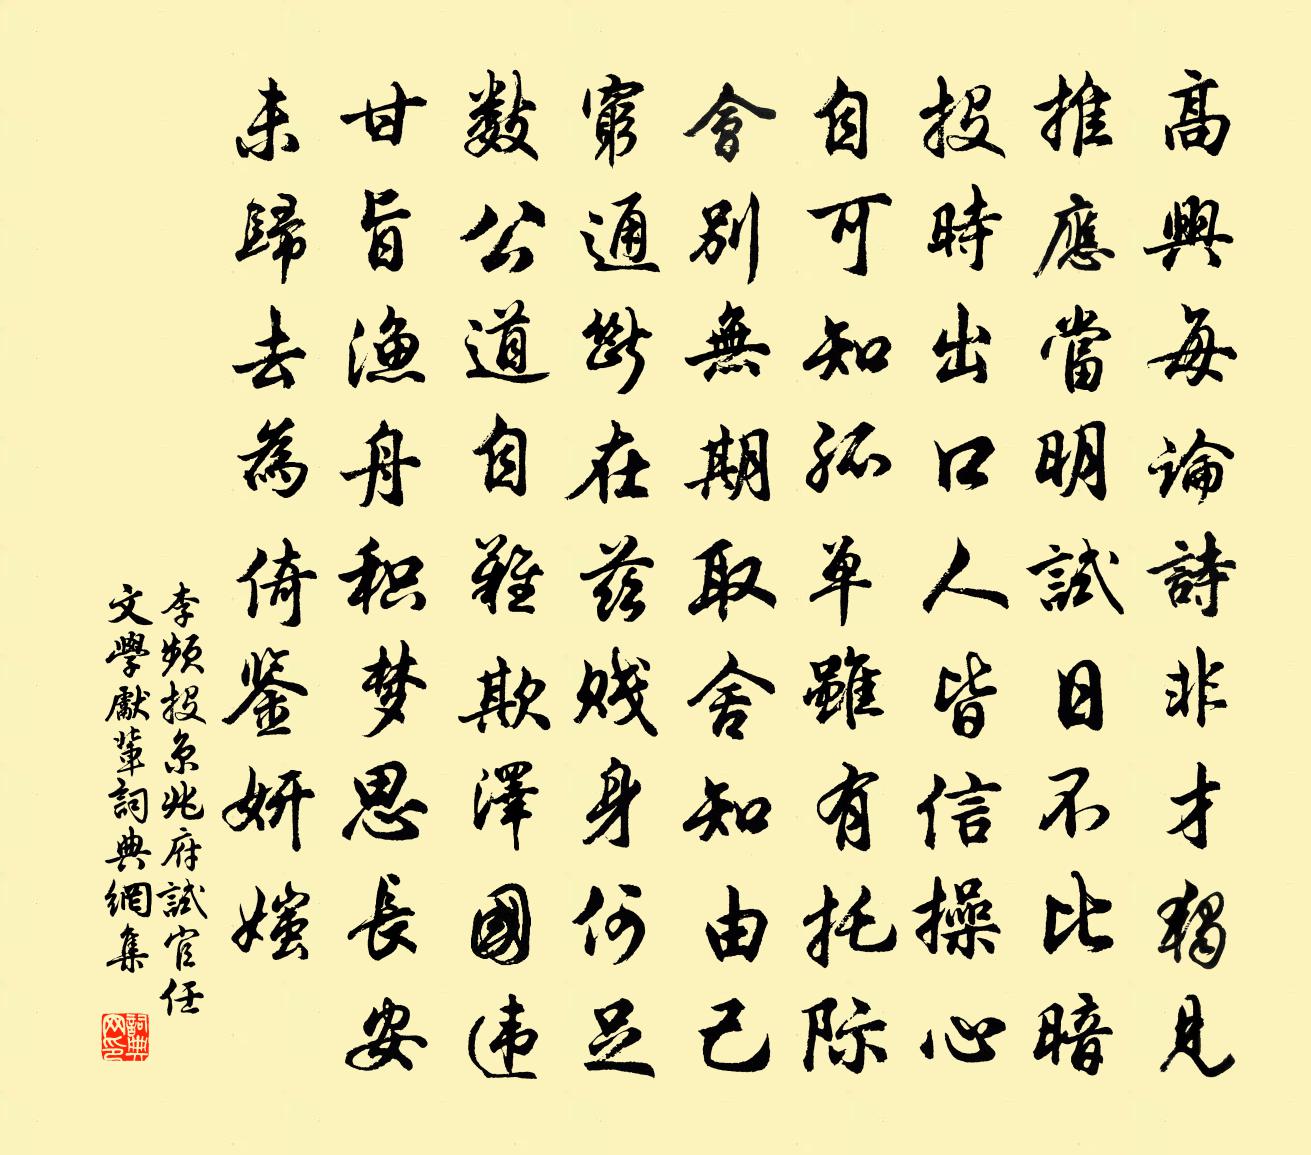 高興每論詩非才獨見
推應當明試日不比暗
投時出口人皆信操心
自可知孤单雖有托际
會別無期取舍知由己
窮通斷在茲贱身何足
數公道自難欺澤國违
甘旨漁舟积梦思長安
未歸去為倚鉴妍媸
李頻投京兆府試官任
文學獻輩詞典網集
詞典
网印